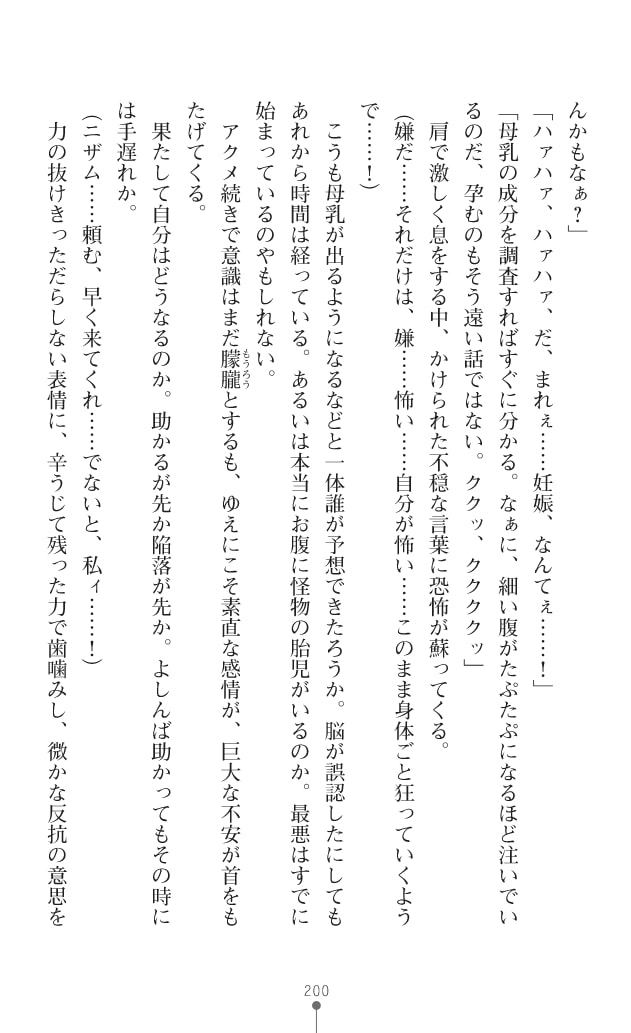 んかもなぁ？」
「ハァハァ、ハァハァ、だ、まれぇ……妊娠、なんてぇ……！」
「母乳の成分を調査すればすぐに分かる。なぁに、細い腹がたぷたぷになるほど注いでい
るのだ、孕むのもそう遠い話ではない。ククッ、クククッ」
肩で激しく息をする中、かけられた不穏な言葉に恐怖が蘇ってくる。
（嫌だ……それだけは、嫌……怖い……自分が怖い……このまま身体ごと狂っていくよう
で……！）
こうも母乳が出るようになるなどと一体誰が予想できたろうか。脳が誤認したにしても
あれから時間は経っている。あるいは本当にお腹に怪物の胎児がいるのか。最悪はすでに
始まっているのやもしれない。
アクメ続きで意識はまだ朦朧もうろうとするも、ゆえにこそ素直な感情が、巨大な不安が首をも
たげてくる。
果たして自分はどうなるのか。助かるが先か陥落が先か。よしんば助かってもその時に
は手遅れか。
（ニザム……頼む、早く来てくれ……でないと、私ィ……！）
力の抜けきっただらしない表情に、辛うじて残った力で歯噛みし、微かな反抗の意思を
200